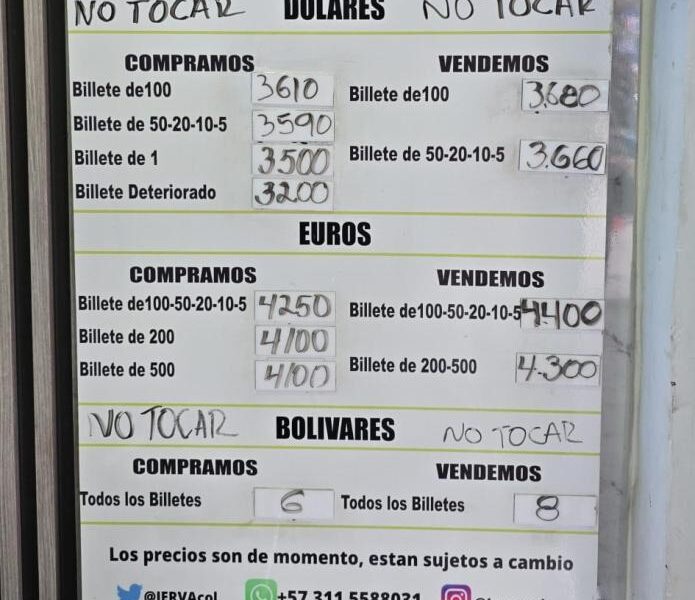 NO TOCAR DOLARES NO TOCAR
COMPRAMOS VENDEMOS
Billete de100 3610 Billete de100 3.680
Billete de 50-20-10-5 3590 Billete de 50-20-10-5 3.660
Billete de 1 3500
Billete Deteriorado 3200
EUROS
COMPRAMOS VENDEMOS
Billete de100-50-20-10-5 4250 Billete de100-50-20-10-5 4.400
Billete de 200 4100
Billete de 500 4100 Billete de 200-500 4.300
NO TOCAR BOLIVARES NO TOCAR
COMPRAMOS VENDEMOS
Todos los Billetes 6 Todos los Billetes 8
Los precios son de momento, estan sujetos a cambio
+57 311 5588031